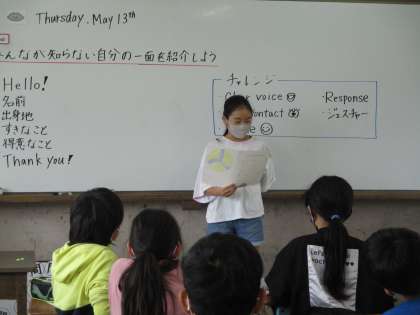 Thursday, May 13th
んなが知らない自分の一面を紹介しよう
Hello!
名前
出身地
すきなこと
得意なこと
Thank you!
チャレンジ
voice
・Response
contact
・ジェスチャー